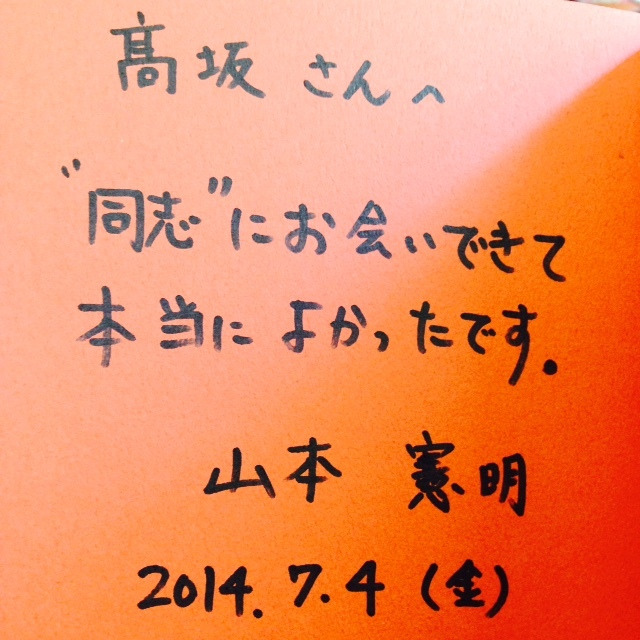 髙坂さんへ
"同志"にお会いできて
本当によかったです.
山本 憲明
2014.7.4(金)